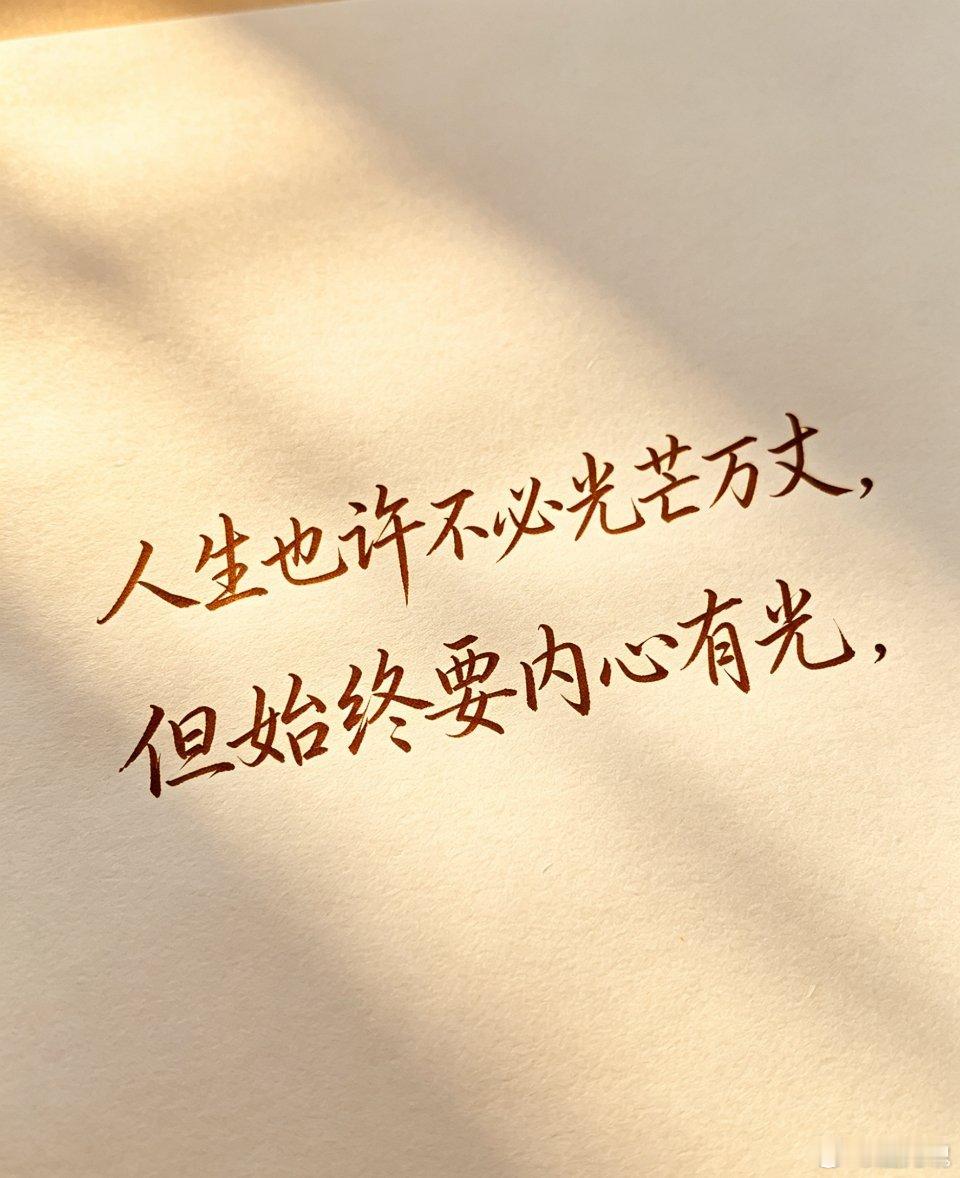 人生也许不必光芒万丈，
但始终要内心有光，